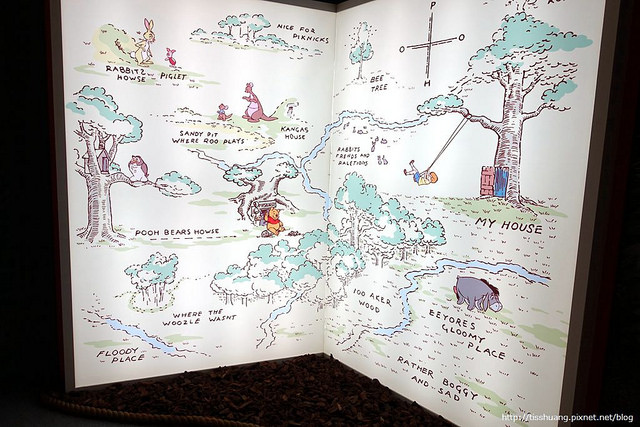 NICE FOR
PIKNICKS
RABBITZ
HOWSE
PIGLET
SANDY PIT
WHERE ROO PLAYS
KANGAS
HOUSE
POOH BEARS HOWSE
WHERE THE
WOOZLE WASNT
FLOODY
PLACE
P
O
O
H
BEE
TREE
RABBITS
FRENDS AND
RALETIONS
MY HOUSE
100 AKER
WOOD
EEYORES
GLOOMY
PLACE
RATHER BOGGY
AND SAD
http://tisshuang.pixnet.net/blog